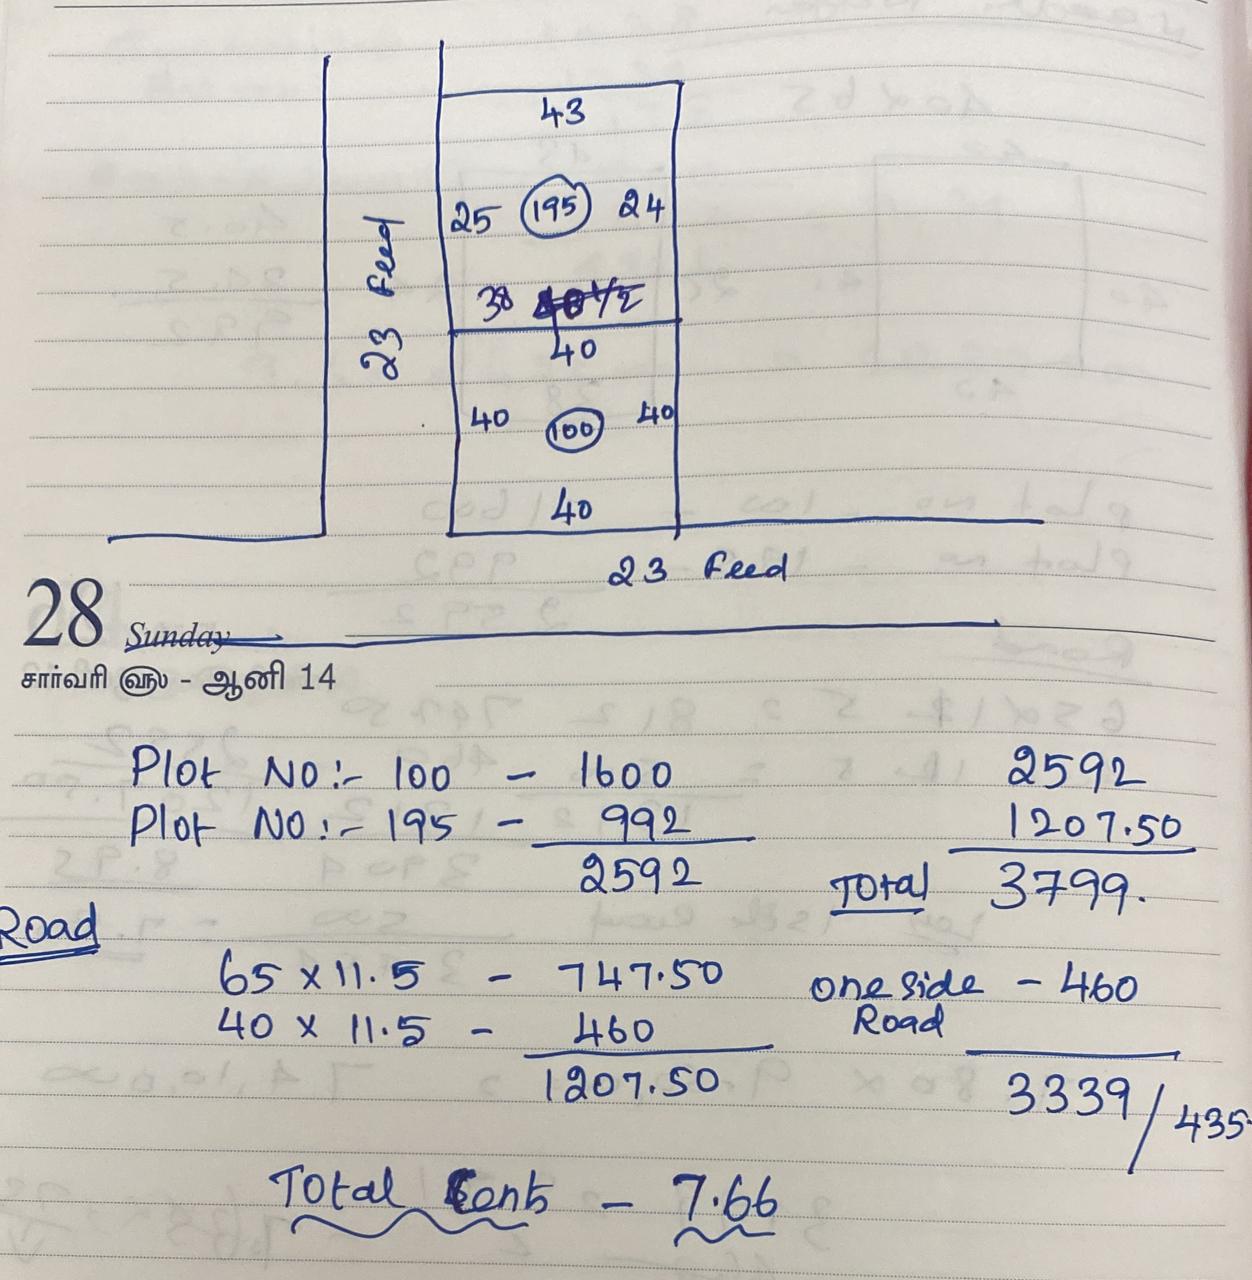 43
25 195 24
23 Feed
38 40 1/2
40
40 100 40
40
23 Feed
28 Sunday
சார்வரி ௵ - ஆனி 14
Plot NO:- 100 - 1600
Plot NO:- 195 - 992
2592
2592
1207.50
Total 3799.
Road
65 x 11.5 - 747.50
40 x 11.5 - 460
1207.50
one side - 460
Road
3339 / 435
Total Cent - 7.66